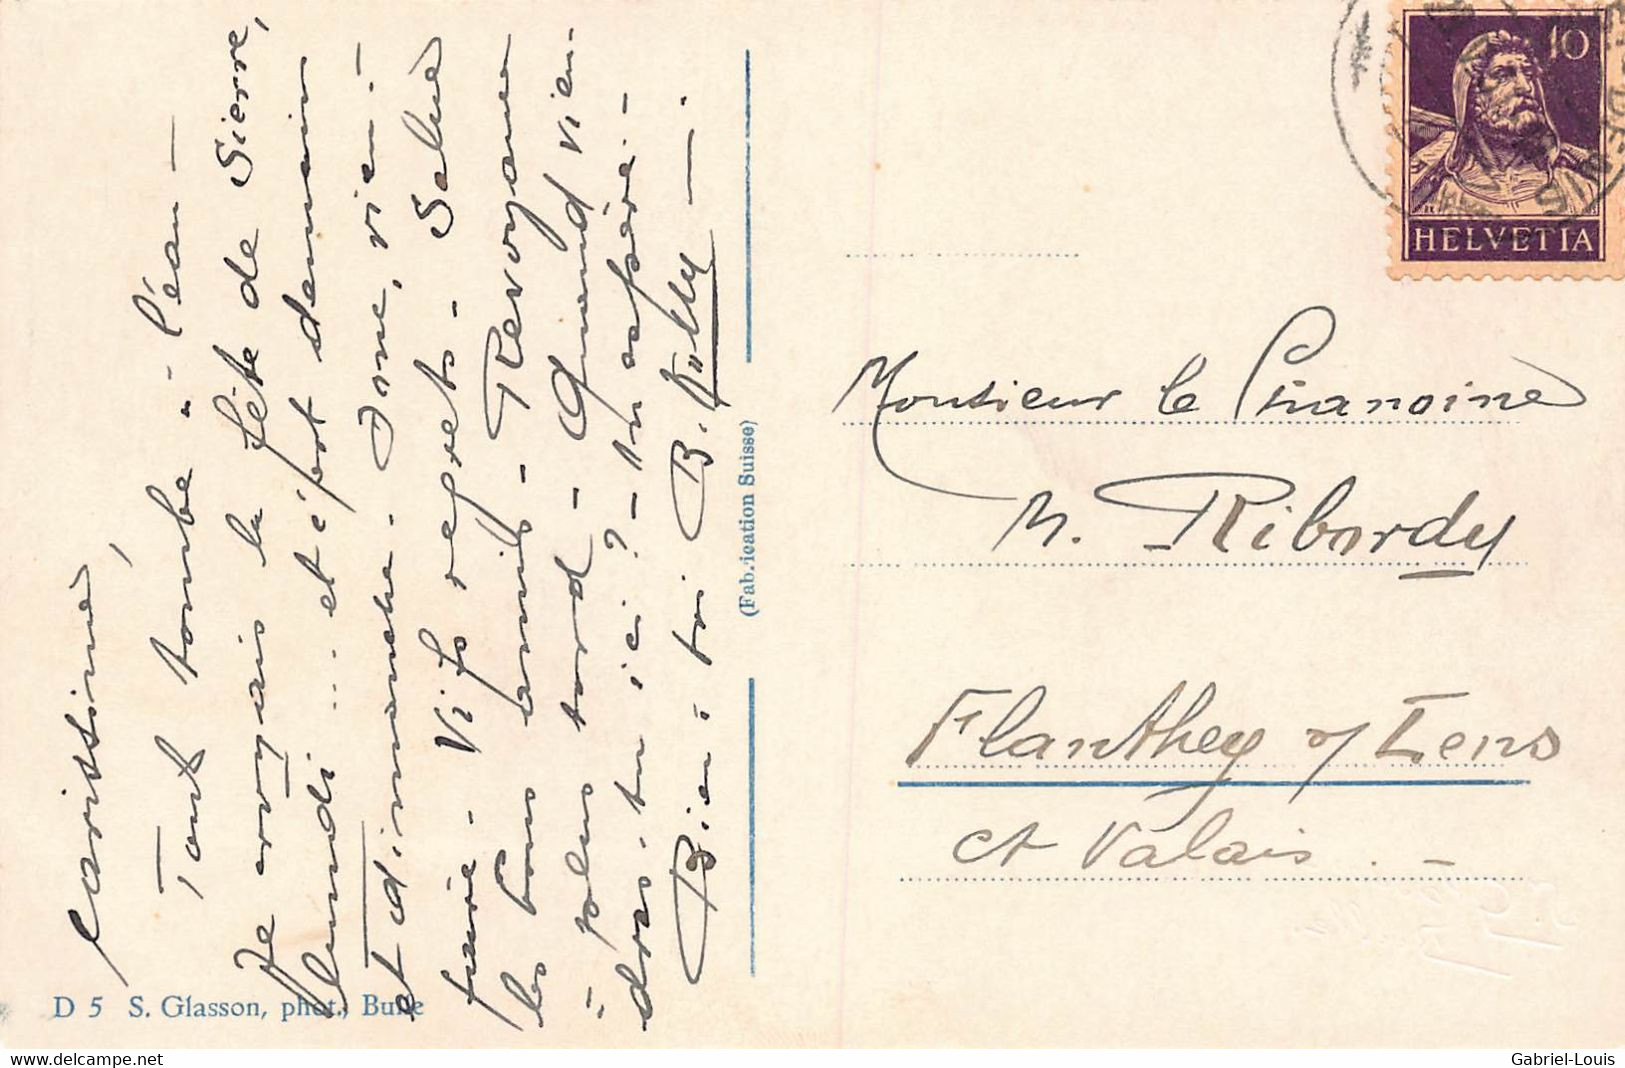 Carissime,
Tout tombe à l'eau —
Je croyais la fête de Sierre,
lundi ... et c'est demain
et dimanche. Donc, rien à
faire. Vifs regrets. Salue
les bons amis. Revoyons
"plus tard". Quand vien-
dras-tu ici? — 
Bien à toi B.
(Fabrication Suisse)
D 5 S. Glasson, phot., Bulle
10
HELVETIA
Monsieur le Chanoine
M. Ribordy
Flanthey s/ Lens
Ct Valais. -
delcampe.net
Gabriel-Louis